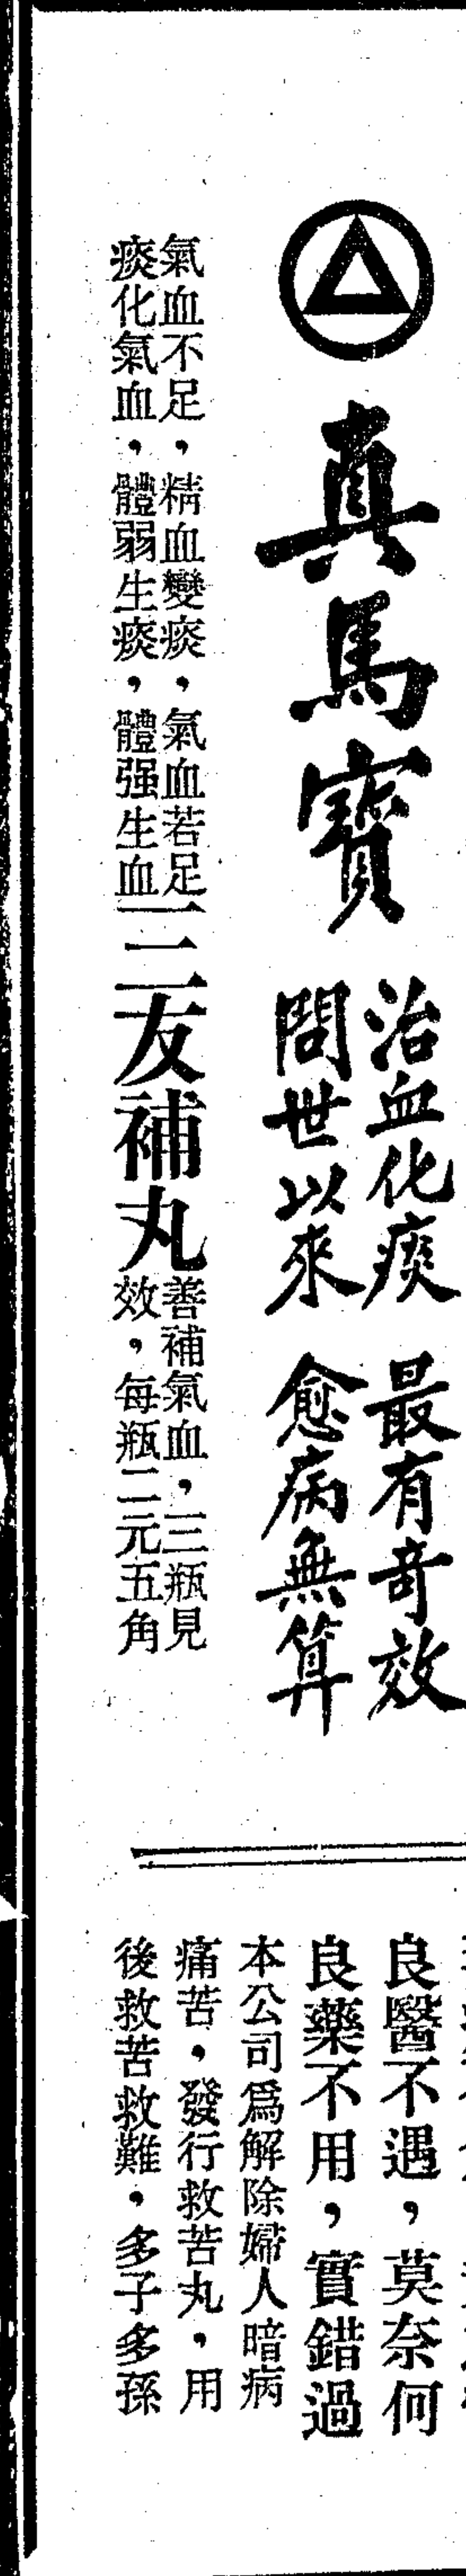 真馬寶
治血化痰 最有奇效
問世以來 愈病無算
氣血不足，精血變痰，氣血若足
痰化氣血，體弱生痰，體强生血
三友補丸
善補氣血，三瓶見
效，每瓶二元五角
良醫不遇，莫奈何
良藥不用，實錯過
本公司爲解除婦人暗病
痛苦，發行救苦丸，用
後救苦救難，多子多孫